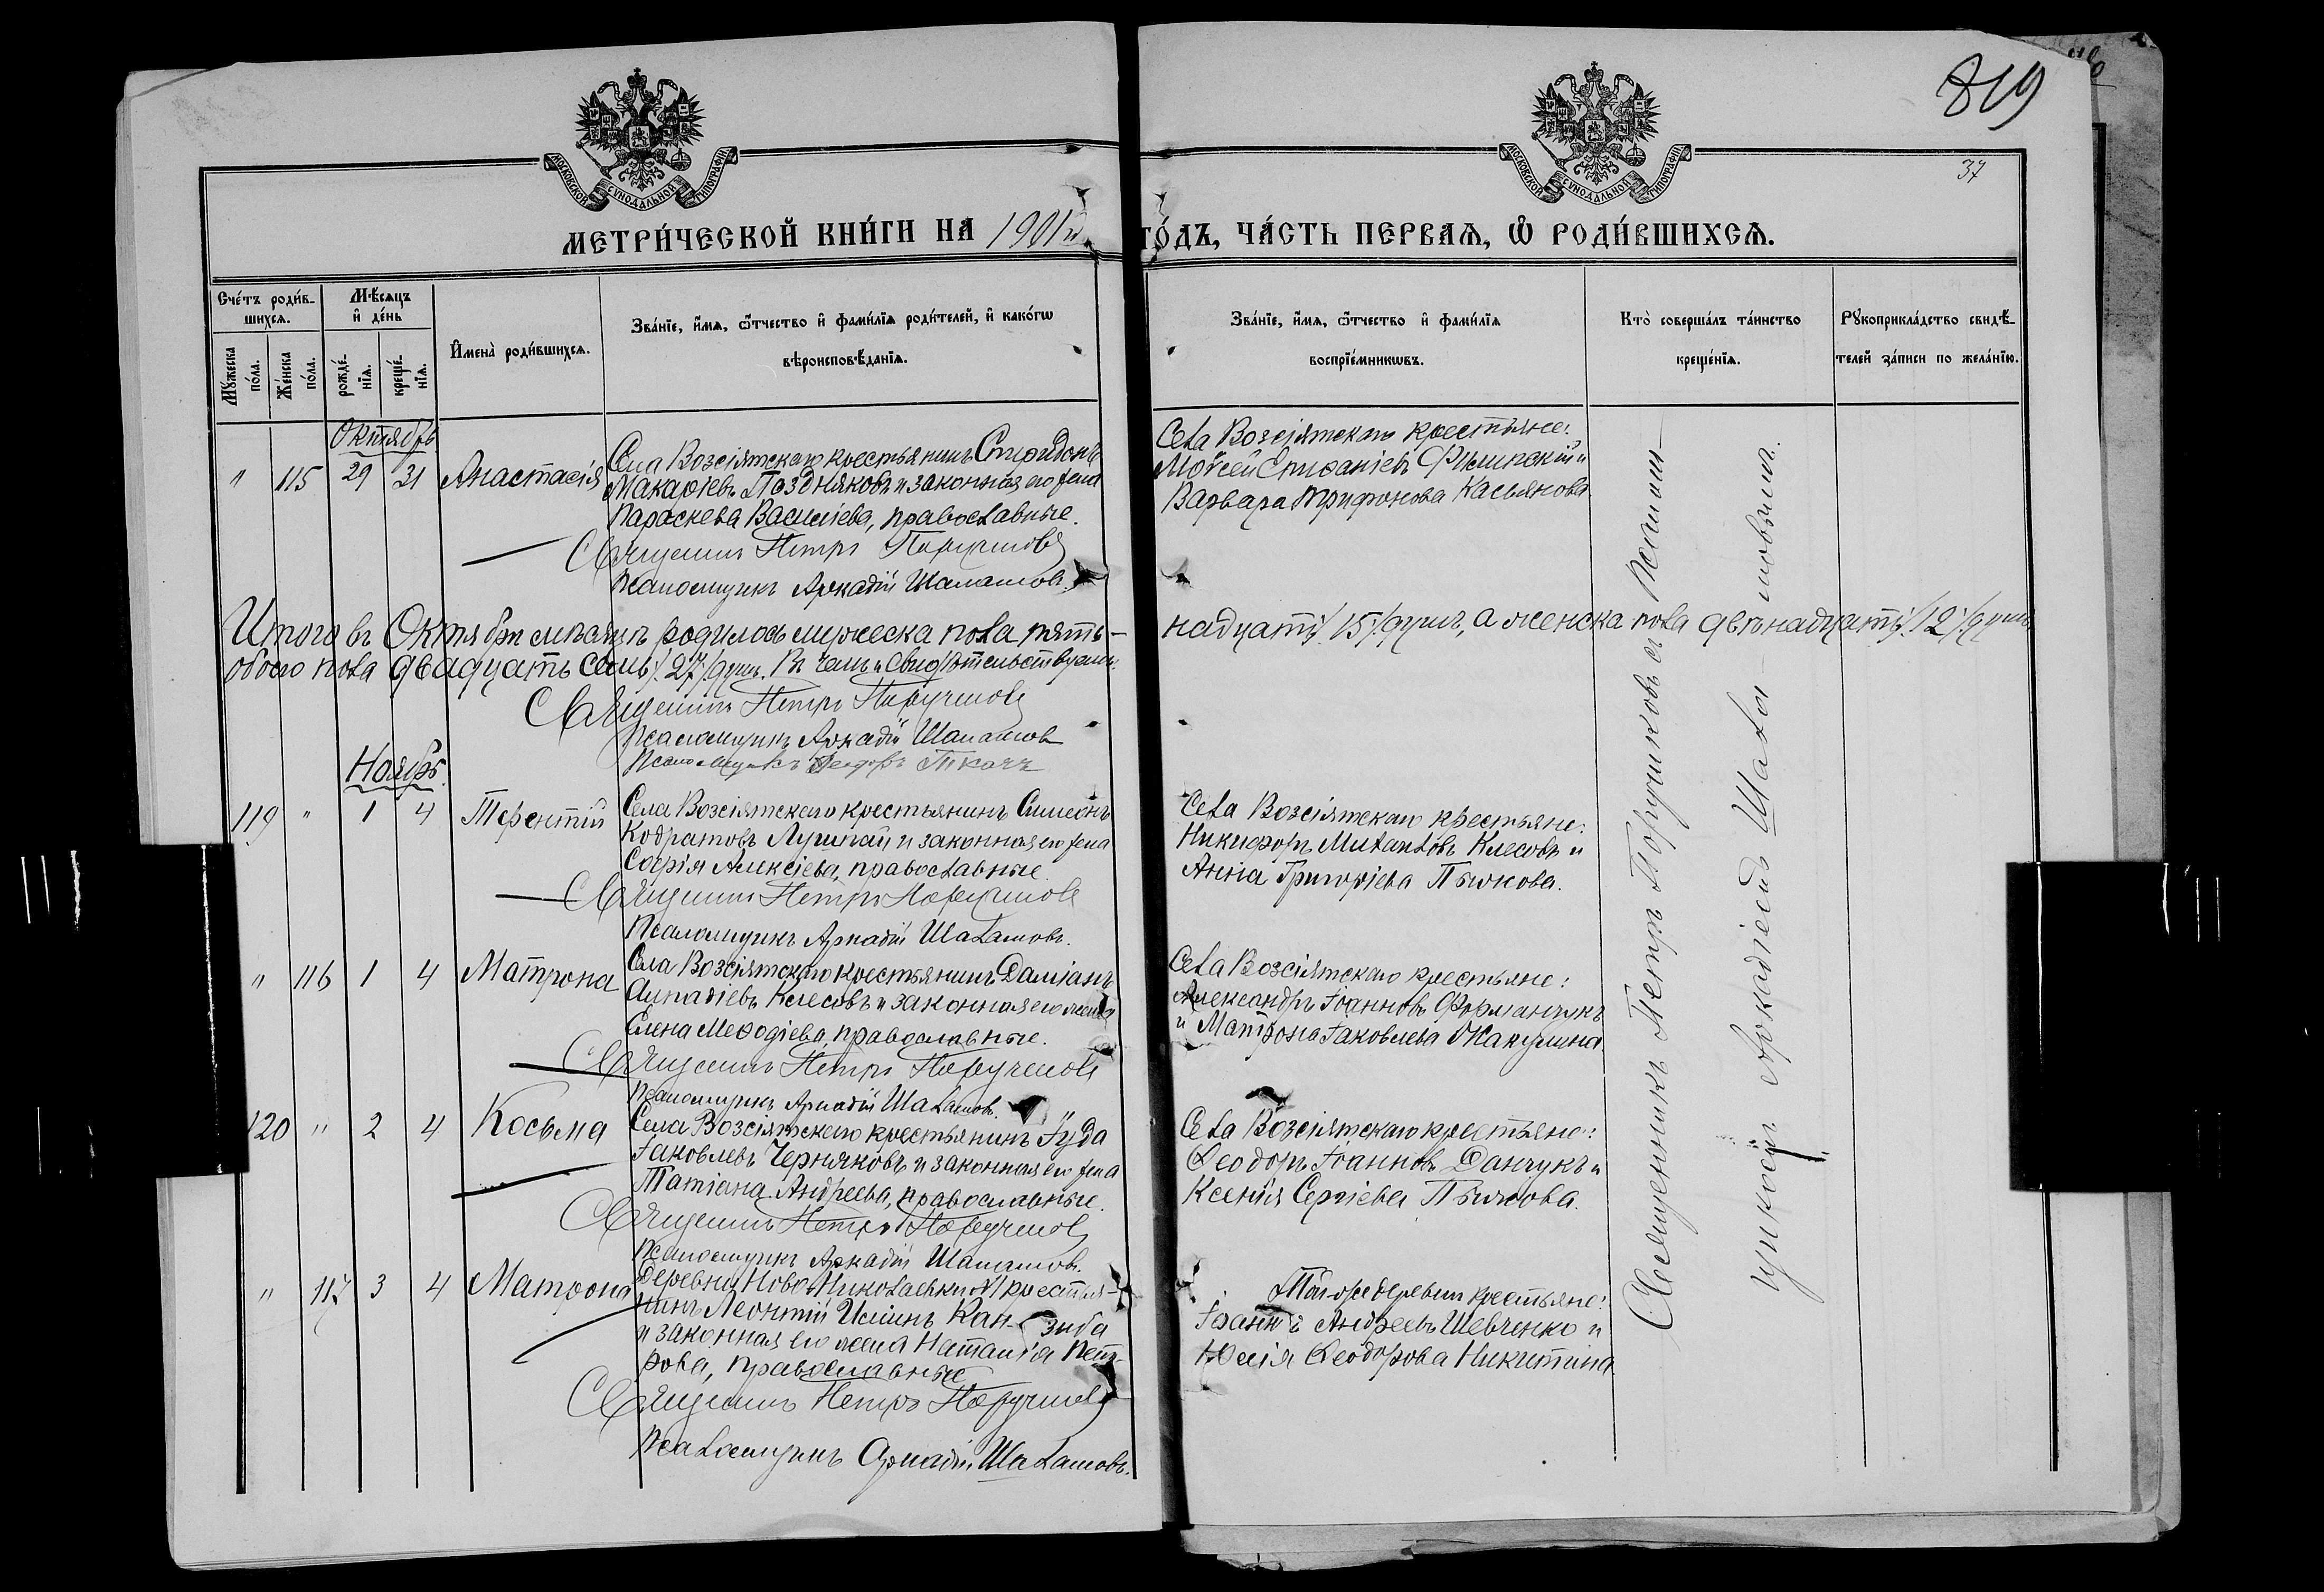 819
37
МОСКОВСКОЙ СѴНОДАЛЬНОЙ ТИПОГРАФІИ
МОСКОВСКОЙ СѴНОДАЛЬНОЙ ТИПОГРАФІИ
МЕТРИ́ЧЕСКОЙ КНИ́ГИ НА 1901й
ГО́ДЪ, ЧА́СТЬ ПЕРВАѦ, Ѽ РОДИ́ВШИХСѦ.
Сче́тъ роди́в-
шихсѧ.
Мꙋжеска
по́ла.
Же́нска
по́ла.
Мѣ́сѧцъ
и҆ де́нь
рожде́-
нїѧ.
креще́-
нїѧ.
И҆мена̀ роди́вшихсѧ.
Зва́нїе, и҆́мѧ, ѻ҆́тчество и҆ фами́лїѧ роди́телей, и҆ како́гѡ
вѣроисповѣ́данїѧ.
Зва́нїе, и҆́мѧ, ѻ҆́тчество и҆ фами́лїѧ
воспрїе́мникѡвъ.
Кто̀ соверша́лъ та́инство
креще́нїѧ.
Рꙋкоприкла́дство свидѣ́-
телей за́писи по жела́нїю.
Октябрь
" 115 29 31 Анастасія
Села Возсіятскаго крестьянинъ Спиридонъ
Макаріевъ Поздняковъ и законная его жена
Параскева Василіева, православные.
Священникъ Петръ Поручиковъ
Псаломщикъ Аркадій Шаламовъ.
Села Возсіятскаго крестьяне:
Моѵсей Епифаніевъ и
Варвара Трифонова Касьянова.
Итого въ Октябрѣ мѣсяцѣ родилось мужеска пола пять-
надцать /15/ душъ, а женска пола двѣнадцать /12/ душъ
обоего пола двадцать семь /27/ душъ. Въ чемъ и свидѣтельствуемъ.
Священникъ Петръ Поручиковъ
Псаломщикъ Аркадій Шаламовъ
Псаломщикъ Ѳеодоръ Ткачъ
Ноябрь.
119 " 1 4 Терентій
Села Возсіятскаго крестьянинъ Симеонъ
Кодратовъ и законная его жена
Софія Алексіева, православные.
Священникъ Петръ Поручиковъ
Псаломщикъ Аркадій Шаламовъ.
Села Возсіятскаго крестьяне:
Никифоръ Михаиловъ Клесовъ и
Анна Григоріева Пыжова.
" 116 1 4 Матрона
Села Возсіятскаго крестьянинъ Даміанъ
Клесовъ и законная его жена
Елена Меѳодіева, православные.
Священникъ Петръ Поручиковъ
Псаломщикъ Аркадій Шаламовъ.
Села Возсіятскаго крестьяне:
Александръ Іоанновъ Форманчукъ
и Матрона Іаковлева
120 " 2 4 Косьма
Села Возсіятскаго крестьянинъ Іуда
Іаковлевъ Черняковъ и законная его жена
Татіана Андреева, православные.
Священникъ Петръ Поручиковъ
Псаломщикъ Аркадій Шаламовъ.
Села Возсіятскаго крестьяне:
Ѳеодоръ Іоанновъ Данчукъ и
Ксенія Сергіева Пыжова.
" 117 3 4 Матрона
Деревни Ново-Николаевки крестья-
нинъ Леонтій Кан- зюба
и законная его жена Наталія Пет-
рова, православные
Священникъ Петръ Поручиковъ
Псаломщикъ Аркадій Шаламовъ.
Той-же деревни крестьяне:
Іоаннъ Андреевъ Шевченко и
Юлія Ѳеодорова Никитина.
Священникъ Петръ Поручиковъ съ Псаломщ-
щикомъ Аркадіемъ Шаламовымъ.